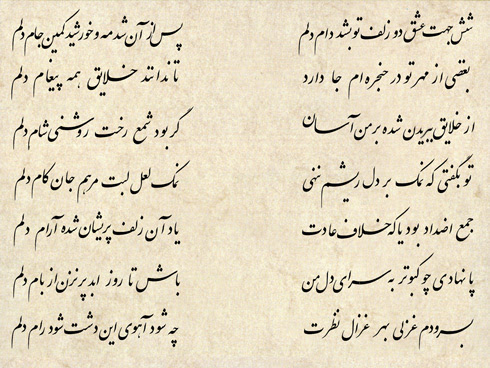 شش جهت عشق دو زلف تو بشد دام دلم
پس از آن شد مه و خورشید کمین جام دلم
بغضی از مهر تو در حنجره ام جا دارد
تا ندانند خلایق همه پیغام دلم
از خلایق ببریدن شده بر من آسان
گر بود شمع رخت روشنی شام دلم
تو بگفتی که نمک بر دل ریشم ننهی
نمک لعل لبت مرهم جان کام دلم
جمع اضداد بود یا که خلاف عادت
یاد آن زلف پریشان شده آرام دلم
پا نهادی چو کبوتر به سرای دل من
باش تا روز ابد پر نزن از بام دلم
بسرودم غزلی بهر غزال نظرت
چه شود آهوی این دشت شود رام دلم